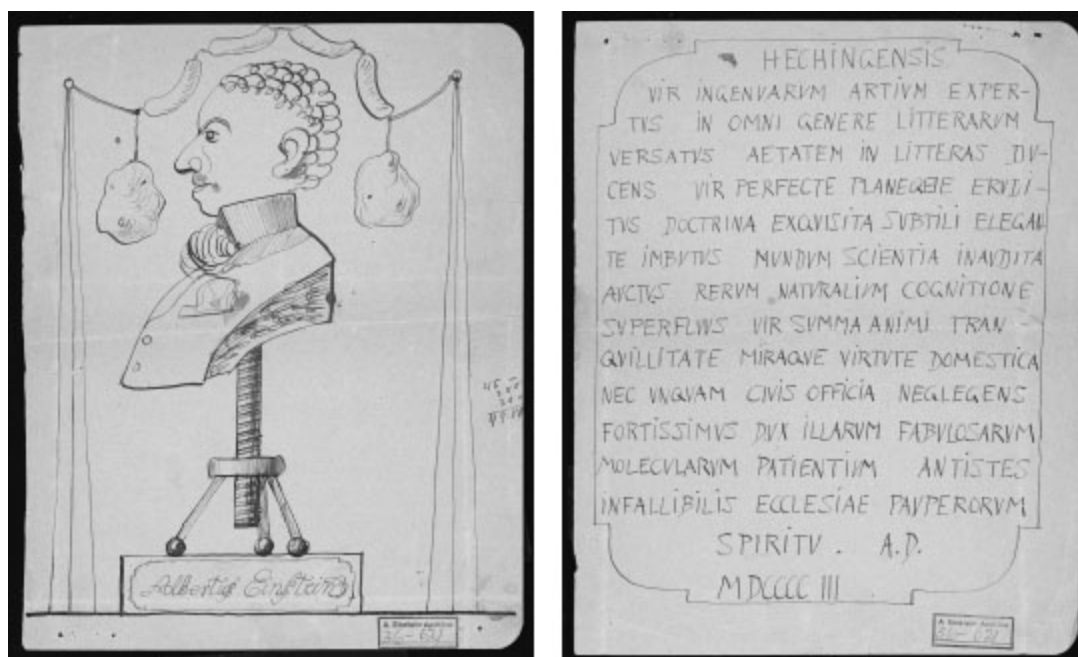 Albertus Einstein
A. Einstein Archive
36-621
HECHINGENSIS
VIR INGENVARVM ARTIVM EXPER-
TVS IN OMNI GENERE LITTERARVM
VERSATVS AETATEM IN LITTERAS DV-
CENS VIR PERFECTE PLANEQVE ERVDI-
TVS DOCTRINA EXQVISITA SVBTILI ELEGAN
TE IMBVTVS MVNDVM SCIENTIA INAVDITA
AVCTVS RERVM NATVRALIVM COGNITIONE
SVPERFLVVS VIR SVMMA ANIMI TRAN-
QVILLITATE MIRAQVE VIRTVTE DOMESTICA
NEC VNQVAM CIVIS OFFICIA NEGLEGENS
FORTISSIMVS DVX ILLARVM FABVLOSARVM
MOLECVLARVM PATIENTIVM ANTISTES
INFALLIBILIS ECCLESIAE PAVPERORVM
SPIRITV. A.D.
MDCCCC III
A. Einstein Archive
36-621